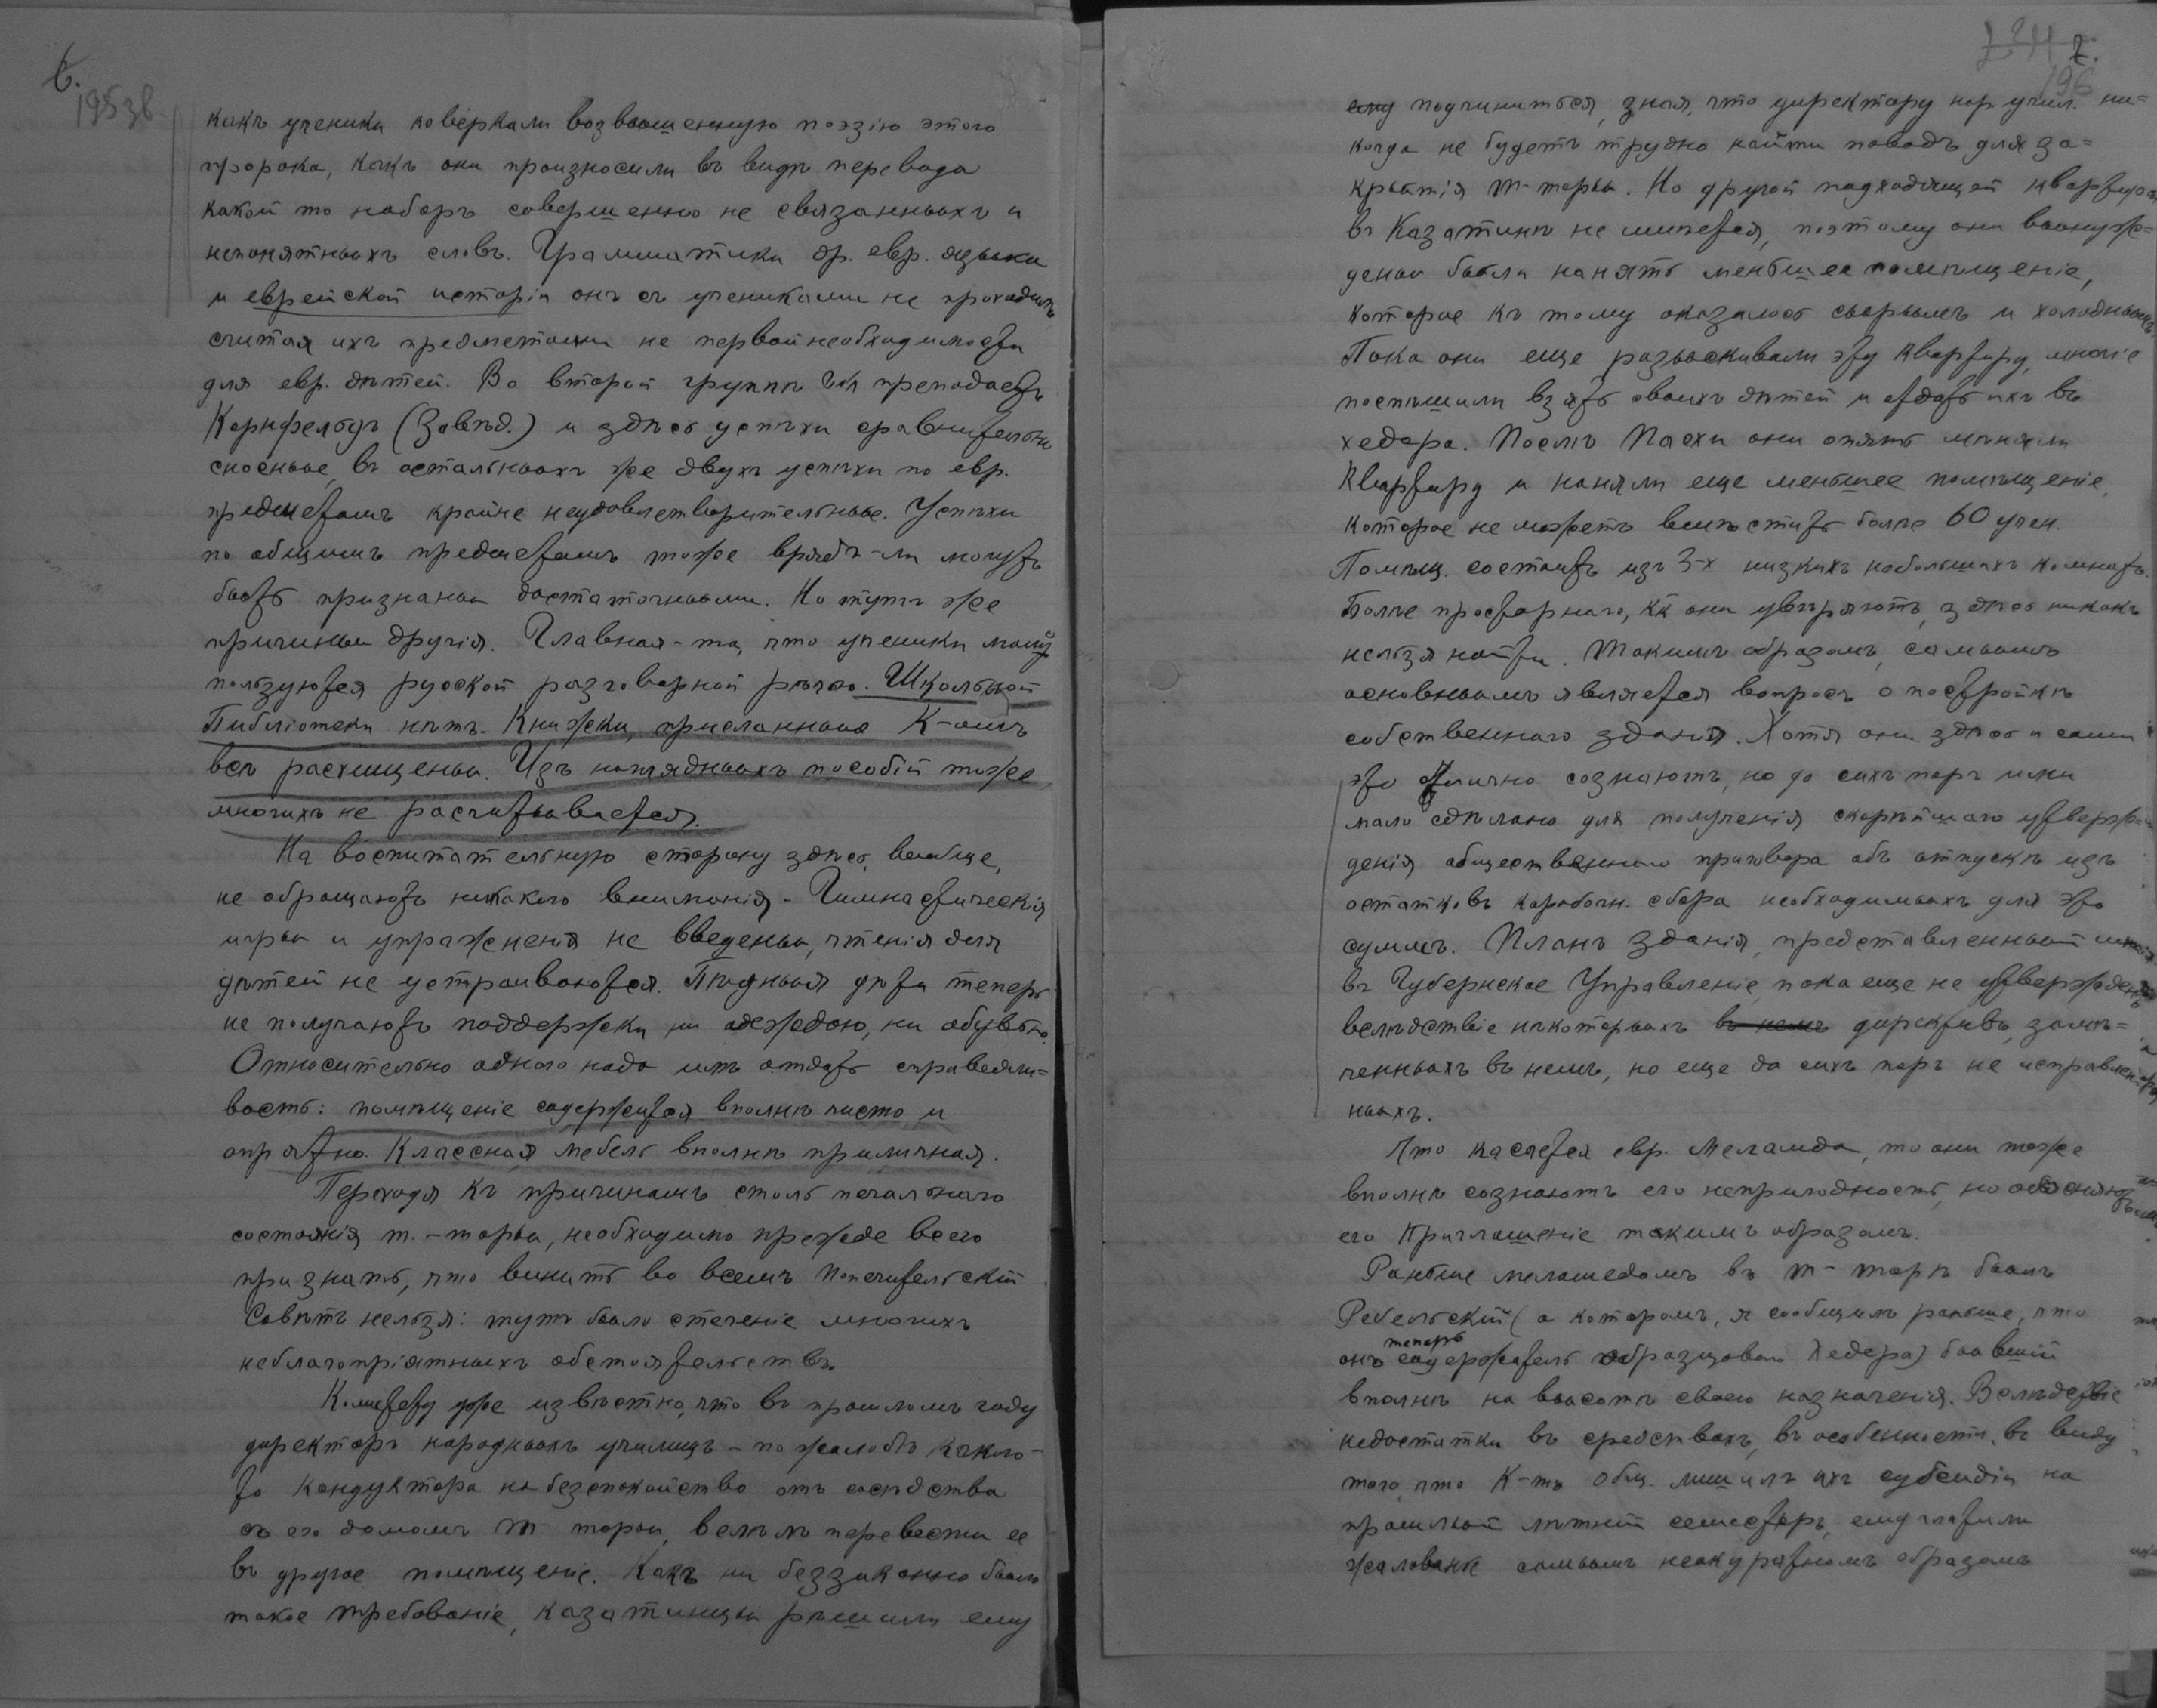 6.
195 зв.
какъ ученики коверкали возвышенную поэзію этого
пророка, какъ они произносили въ видѣ перевода
какой то наборъ совершенно не связанныхъ и
непонятныхъ словъ. Грамматики др. евр. языка
и еврейской исторіи онъ съ учениками не проходитъ
считая ихъ предметами не первой необходимости
для евр. дѣтей. Во второй группѣ преподаетъ
Корнфельдъ (Завѣд.) и здѣсь успѣхи сравнительно
сносные, въ остальныхъ же двухъ успѣхи по евр.
предметамъ крайне неудовлетворительные. Успѣхи
по общимъ предметамъ тоже врядъ-ли могутъ
быть признаны достаточными. Но тутъ же
причины другія. Главная-та, что ученики мало
пользуются русской разговорной рѣчью. Школьной
Библіотеки нѣтъ. Книжки, присланныя К-омъ
всѣ расхищены. Изъ наглядныхъ пособій тоже
многихъ не расчитывается.
На воспитательную сторону здѣсь, вообще,
не обращаютъ никакого вниманія. Гимнастическія
игры и упражненія не введены, чтенія для
дѣтей не устраиваются. Бѣдныя дѣти теперь
не получаютъ поддержки ни одеждою, ни обувью.
Относительно одного надо имъ отдать справедли=
вость: помѣщеніе содержится вполнѣ чисто и
опрятно. Классная мебель вполнѣ приличная.
Переходя къ причинамъ столь печальнаго
состоянія т.-торы, необходимо прежде всего
признать, что винить во всемъ Попечительскій
Совѣтъ нельзя: тутъ было стеченіе многихъ
неблагопріятныхъ обстоятельствъ.
Комитету уже извѣстно, что въ прошломъ году
директоръ народныхъ училищъ - по жалобѣ какого-
то кондуктора на безпокойство отъ сосѣдства
съ его домомъ т-торы, велѣлъ перевести ее
въ другое помѣщеніе. Какъ ни беззаконно было
такое требованіе, казатинцы рѣшили ему
7.
196
ему подчиниться, зная, что директору нар. учил. ни=
когда не будетъ трудно найти поводъ для за=
крытія т-торы. Но другой подходящей квартиры
въ Казатинѣ не имѣется, поэтому они вынуж=
дены были нанять меньшее помѣщеніе,
которое къ тому оказалось сырымъ и холоднымъ.
Пока они еще разыскивали эту квартиру, многіе
поспѣшили взять своихъ дѣтей и отдать ихъ въ
хедера. Послѣ Пасхи они опять мѣняли
квартиру и наняли еще меньшее помѣщеніе,
которое не можетъ вмѣстить болѣе 60 учен.
Помѣщ. состоитъ изъ 3-х низкихъ небольшихъ комнатъ.
Болѣе просторнаго, кк они увѣряютъ, здѣсь никакъ
нельзя найти. Такимъ образомъ, самымъ
основнымъ является вопросъ о постройкѣ
собственнаго зданія. Хотя они здѣсь и сами
это отлично сознаютъ, но до сихъ поръ ими
мало сдѣлано для полученія скорѣйшаго утверж=
денія общественнаго приговора объ отпускѣ изъ
остатковъ коробочн. сбора необходимыхъ для этого
суммъ. Планъ зданія, представленный ими
въ Губернское Управленіе, пока еще не утвержденъ
вслѣдствіе нѣкоторыхъ въ немъ дефектовъ, замѣ=
ченныхъ въ немъ, но еще до сихъ поръ не исправлен=
ныхъ.
Что касается евр. меламда, то они тоже
вполнѣ сознаютъ его непригодность, но объясняютъ
его приглашеніе такимъ образомъ.
Раньше меламедомъ въ т-торѣ былъ
Ребельскій (о которомъ, я сообщилъ раньше, что
онъ теперь содержатель образцоваго Хедера) бывшій
вполнѣ на высотѣ своего назначенія. Вслѣдствіе
недостатка въ средствахъ, въ особенности, въ виду
того, что К-тъ Общ. лишилъ ихъ субсидіи на
прошлый лѣтній семестръ, ему платили
жалованіе самымъ неаккуратнымъ образомъ